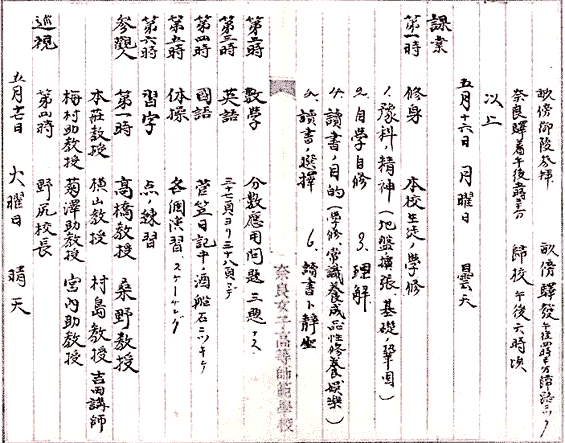 畝傍御陵参拝　畝傍驛發
奈良驛着午後　歸校午後六時頃
以上
五月十六日　月曜日　曇天
課業
第一時　修身　本校生徒ノ学修
1. 豫科ノ精神（地盤擴張、基礎ノ鞏固）
2. 自学自修　3. 理解
4. 讀書ノ目的（学修、常識養成、品性修養、娯樂）
5. 讀書ノ選擇　6. 讀書ト静坐
奈良女子高等師範學校
第二時　数学　分數應用問題三題
第三時　英語　三十七頁ヨリ三十八頁マデ
第四時　國語　菅笠日記中ノ酒船石ニツキテ
第五時　体操　各個演習、スケーチング
第六時　習字　点ノ練習
参觀人　第一時　高橋教授　桑野教授
本莊教授　横山教授　村島教授　吉田講師
梅村助教授　菊澤助教授　宮内助教授
巡視　第四時　野尻校長
五月十七日　火曜日　晴天